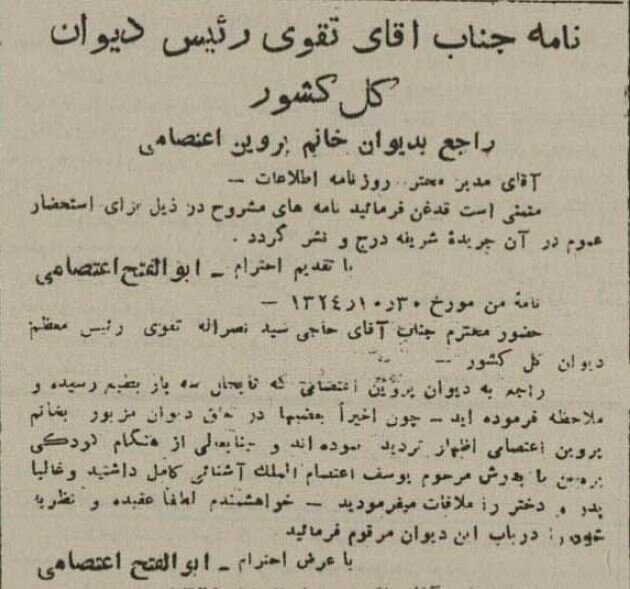 نامه جناب اقای تقوی رئیس دیوان
کل کشور
راجع بدیوان خانم پروین اعتصامی
آقای مدیر محترم روزنامه اطلاعات —
متمنی است قدغن فرمائید نامه های مشروح در ذیل برای استحضار
عموم در آن جریدهٔ شریفه درج و نشر گردد .
با تقدیم احترام ـ ابوالفتح اعتصامی
نامهٔ من مورخ ۳۰ر۱۰ر۱۳۲٤ —
حضور محترم جناب آقای حاجی سید نصراله تقوی رئیس معظم
دیوان کل کشور —
راجع به دیوان پروین اعتصامی که تابحال سه بار بطبع رسیده و
ملاحظه فرموده اید ـ چون اخیراً بعضیها در تعلق دیوان مزبور بخانم
پروین اعتصامی اظهار تردید نموده اند و جنابعالی از هنگام کودکی
پروین با پدرش مرحوم یوسف اعتصام الملك آشنائی کامل داشتید وغالبا
پدر و دختر را ملاقات میفرمودید — خواهشمندم لطفا عقیده و نظریه
خودرا درباب این دیوان مرقوم فرمائید
با عرض احترام ـ ابوالفتح اعتصامی